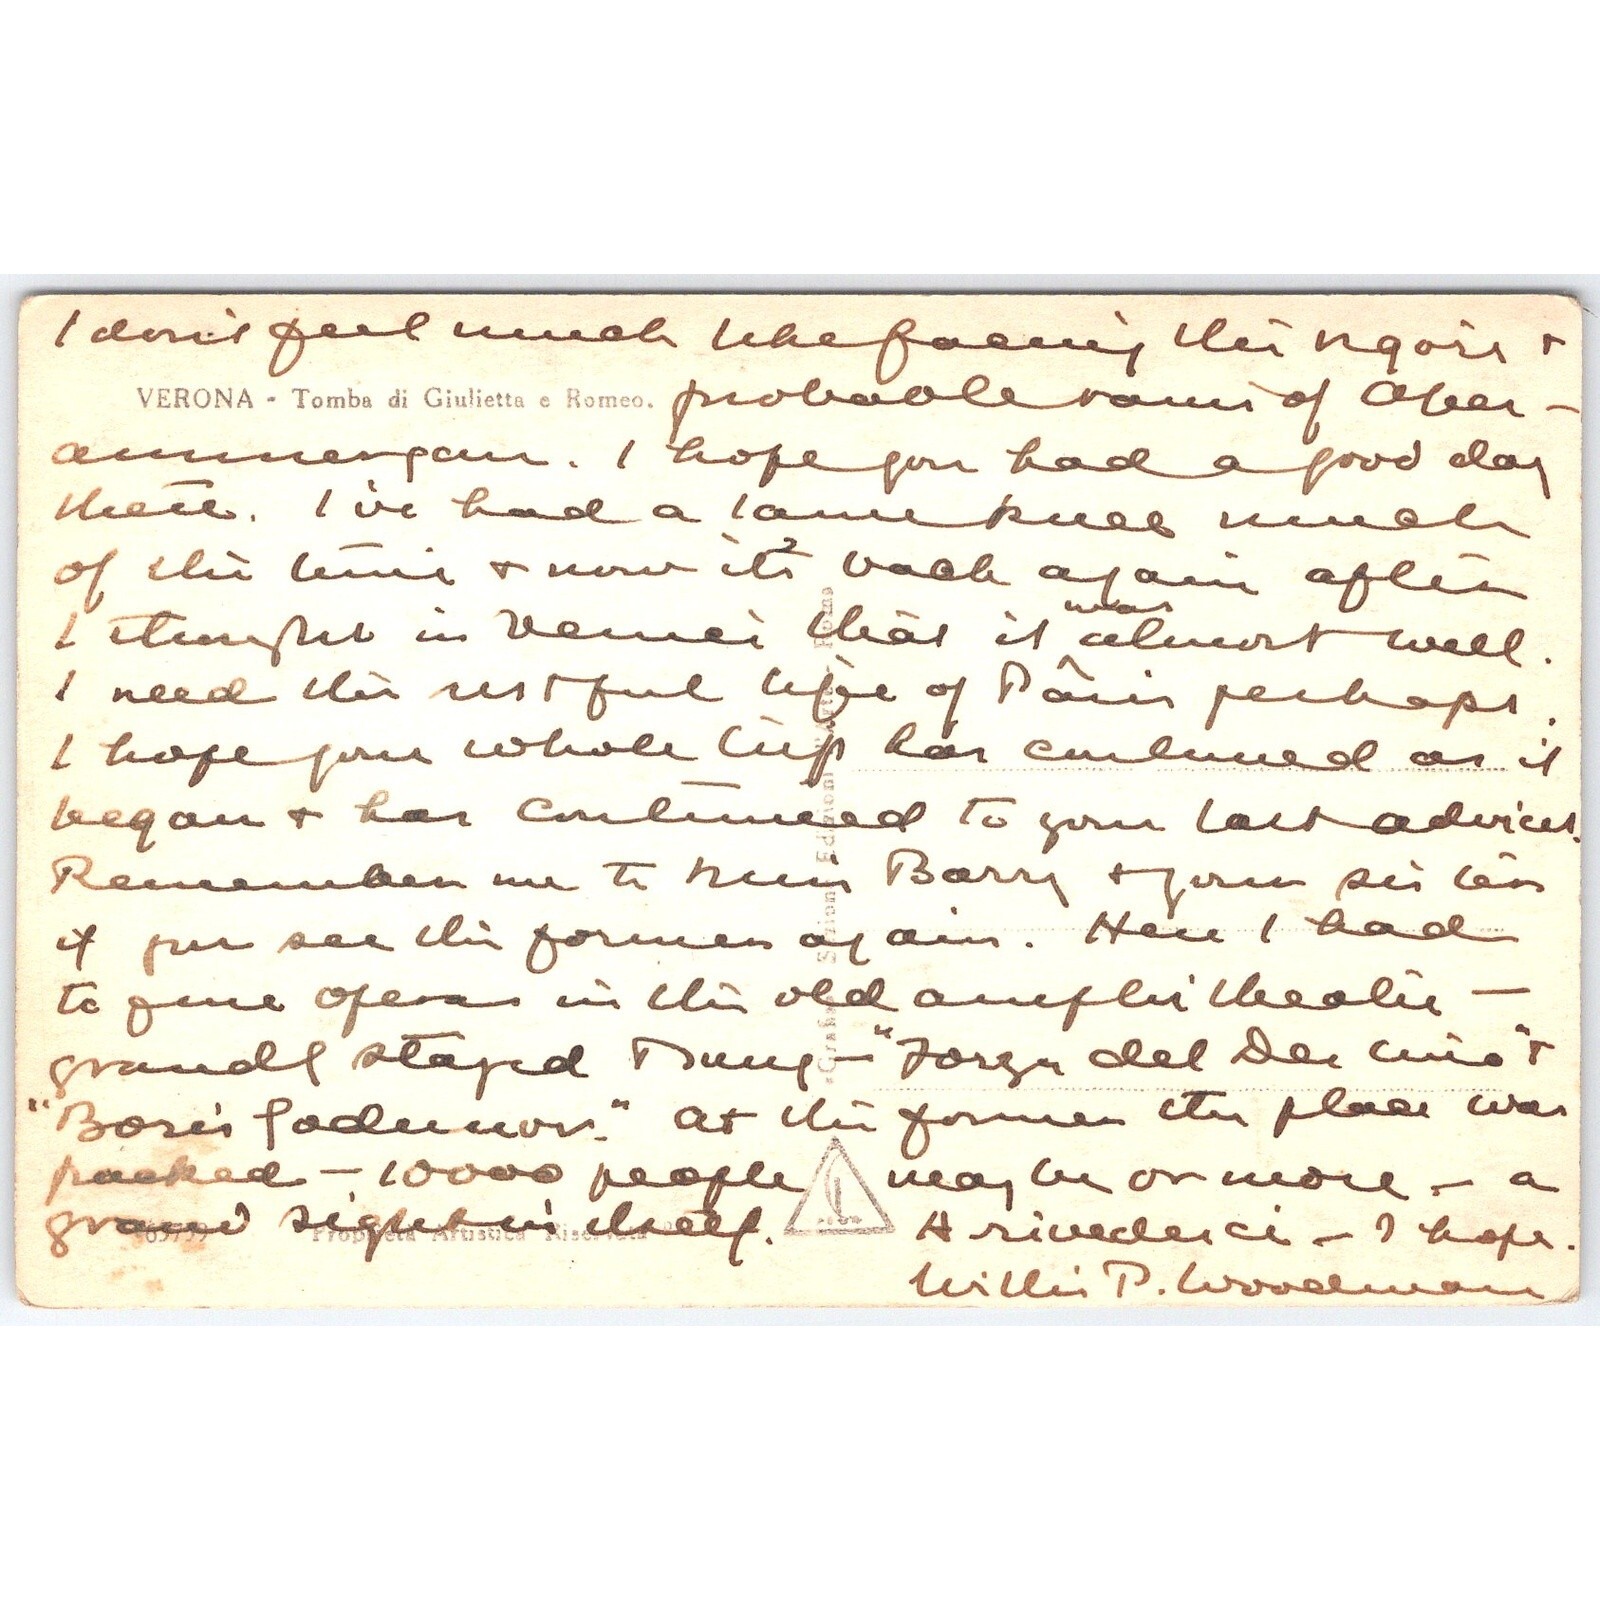 I don't feel much like facing the rigors &
VERONA - Tomba di Giulietta e Romeo.
probable rains of Ober-
ammergau. I hope you had a good day
there. I've had a lame knee much
of the time & now it's back again after
I thought in Venice that it was almost well.
I need the restful life of Paris perhaps.
I hope your whole trip has continued as it
began & has continued to your last advices.
Remember me to Barry & your sister
if you see the former again. Here I had
to fine operas in the old amphitheatre -
grandly staged & sung - "Forza del Destino" &
"Boris Godunov." At the former the place was
packed - 10000 people may be or more - a
grand sight in itself.
Arivederci - I hope.
Willis P. Woodman
65759
Proprietà Artistica Riservata